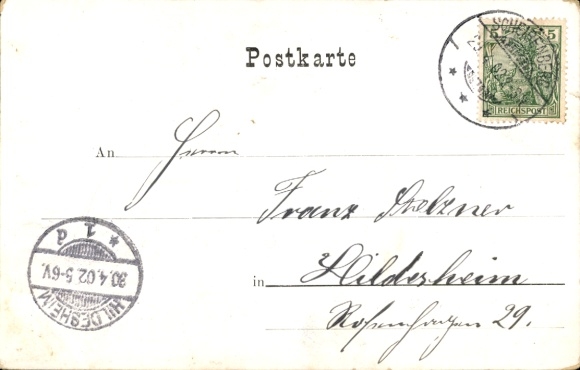 Postkarte
SCHEIBENBERG
5 5
REICHSPOST
An Herrn
Franz Melzner
in Hildesheim
Rosenhagen 29.
HILDESHEIM
30.4.02.5-6V.
* 1 d